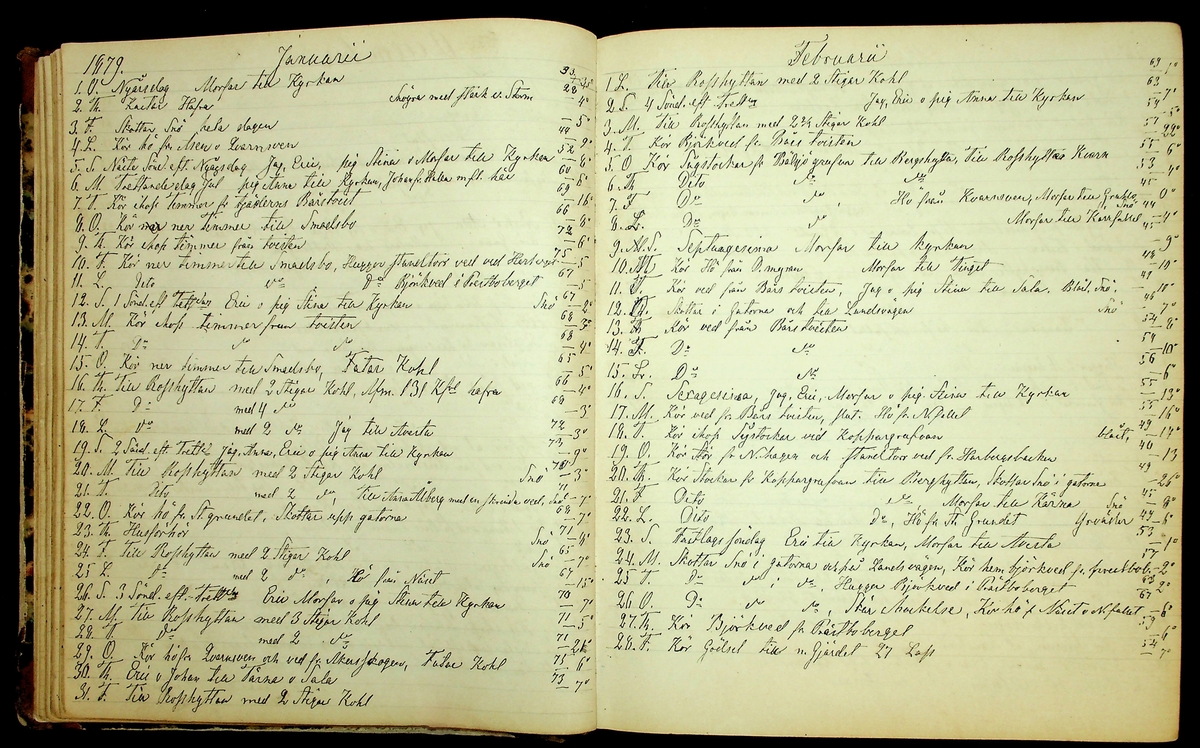 1879. Januarii
33
1. O. Nyårsdag Morfar till Kyrkan 28
2. Th. Kastar Hafra Snögra med stark v. Storm — 4°
3. F. Skottar Snö hela dagen — 5°
4. L. Kör hö fr. Åsen o Qvarnsven 44 — 2°
5. S. Nästa Sönd. eft Nyårsdag Jag, Eric, pig Stina o Morfar till Kyrkan 52 — 8°
6. M. Trettondedag Jul pig Anna till Kyrkan, Johan fr. Hulta m.fl. här 60 — 6°
7. T. Kör ihop timmer fr. Bårstvist 69 — 16°
8. O. Kör ner timmer till Smedsbo 66 — 8°
9. Th. Kör ihop timmer från tvisten 72 — 6°
10. F. Kör ner timmer till Smedsbo, Hugger staveltorr ved vid Harberget 75 — 5
11. L. Dito Do Do Björkved i Prästboberget 67 — 5°
12. S. 1 Sönd. eft Trettdag Eric o pig Stina till Kyrkan Snö 67 — 2°
13. M. Kör ihop timmer från tvisten 68 — 7°
14. T. Do Do Do 68 — 4°
15. O. Kör ner timmer till Smedsbo, Fatar Kohl 65 — 5°
16. Th. Till Rosshyttan med 2 Stigar Kohl, Afm. 131 Kfd hafra 66 — 4°
17. F. Do med 4 Do 69 — 3°
18. L. Do med 2 Do Jag till Avesta 72 — 3°
19. S. 2 Sönd. eft Trettd. Jag, Anna, Eric o pig Anna till Kyrkan 73 — 3°
20. M. Till Rosshyttan med 2 Stigar Kohl Snö 70 — 3°
21. T. Dito med 2 Do, Till Anna Åberg med en skrinda ved, Snö 71 — 7°
22. O. Kör hö fr. St. grundet, Skottar upp gatorna 68 — 7°
23. Th. Husförhör Snö 71 — 4°
24. F. Till Rosshyttan med 2 Stigar Kohl Snö 65 — 7°
25 L. Do med 2 Do, Hö från Näset 67 — 15°
26. S. 3 Sönd. eft. Trettdag Eric Morfar o pig Stina till Kyrkan 70 — 7°
27. M. Till Rosshyttan med 3 Stigar Kohl 71 — 5°
28. T. Do med 2 Do 71 — 2½°
29. O. Kör hö fr Qvarnsven och ved fr. Åkersskogen, Fatar Kohl 75 — 6°
30. Th. Eric o Johan till Tärna o Sala 73 — 7°
31. F. Till Rosshyttan med 2 Stigar Kohl
Februarii
1. L. Till Rosshyttan med 2 Stigar Kohl 69 1°
2. S. 4 Sönd. eft Trettdag Jag, Eric o pig Anna till Kyrkan 62 — 7°
3. M. Till Rosshyttan med 2¾ Stigar Kohl 54 — 5°
4. T. Kör Björkved fr Bårs tvisten 57 — 22°
5. O Kör Sågstockar fr Båsjögrufvan till Berghytta, Till Rosshyttans Kvarn 55 — 6°
6. Th Dito Do Do 53 — 4°
7. F Do Do, Hö från Kvarnsven, Morfar till Grubbo 45 — 0°
8. L. Do Do Snö Morfar till Karrfallet 44 — 4°
9. S. Septuagesima Morfar till Kyrkan 45 — 9°
10. M Kör Hö från D.myran Morfar till Tinget 48 — 10°
11. T. Kör ved från Bårs tvisten, Jag o pig Stina till Sala. Blid. Snö. 41 — 10°
12. O. Skottar i gatorna och till Landsvägen Snö 46 — 7°
13. Th. Kör ved från Bårs tvisten 52 — 8°
14. F. Do Do 54 — 10°
15. L. Do Do 56 — 6°
16. S. Sexagesima, Jag, Eric, Morfar o pig Stina till Kyrkan 55 — 13°
17. M. Kör ved fr Bårs tvisten, samt Hö fr N.fallet 55 — 16°
18. T. Kör ihop Sågstockar vid Koppargrufvan blåst, 49 — 17°
19. O. Kör Hö fr N.hagen och staveltorr ved fr Harbergsbacken 40 — 13
20. Th. Kör Stockar fr Koppargrufvan till Berghyttan, Skottar Snö i gatorna 49 — 26°
21. F Dito Do Morfar till Kärna Snö 45 — 8°
22. L. Dito Do, Hö fr St. Grundet 47 — 6°
23. S. Fastlagssöndag Eric till Kyrkan, Morfar till Avesta 53 — 1°
24. M. Skottar Snö i gatorna o uppå Landsvägen, Kör hem björkved fr Prästbob. 57 — 2°
25 T. Do Do i Do, Hugger Björkved i Prästboberget 63 — 2°
26. O. Do Do Do, Kör hö fr Näset o N.fallet 67 — 8°
27. Th. Kör Björkved fr Prästboberget 59 — 6°
28. F. Kör Gödsel till n. Gjärdet 27 Lass 52 — 7°